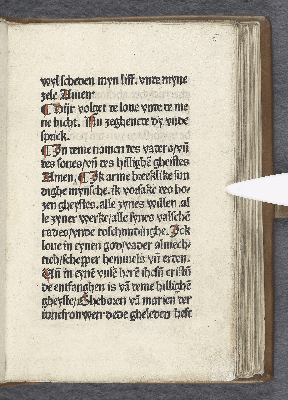 wyl scheden myn liff. vnde myne
zele Amen
Hijr volget de loue vnde de me
ne bicht. Jn zeghende dy vnde
sprick.
Jn deme namen des vaders vñ
des sones vñ des hillighē gheistes
Amen. Jk arme broeklike sun
dighe mynsche. ik vorsake des bo
zen gheystes. alle zynes willen. al
le zyner werke. alle synes valschē
rades vnde
loue in eynen god vader almech
tich schepper hemmels vñ erden.
Uñ in eynē vnsē herē ihesū cristū
de entfanghen is vā deme hillighē
gheyste. Gheboren vā marien der
iuncfrouwen de de gheleden heft